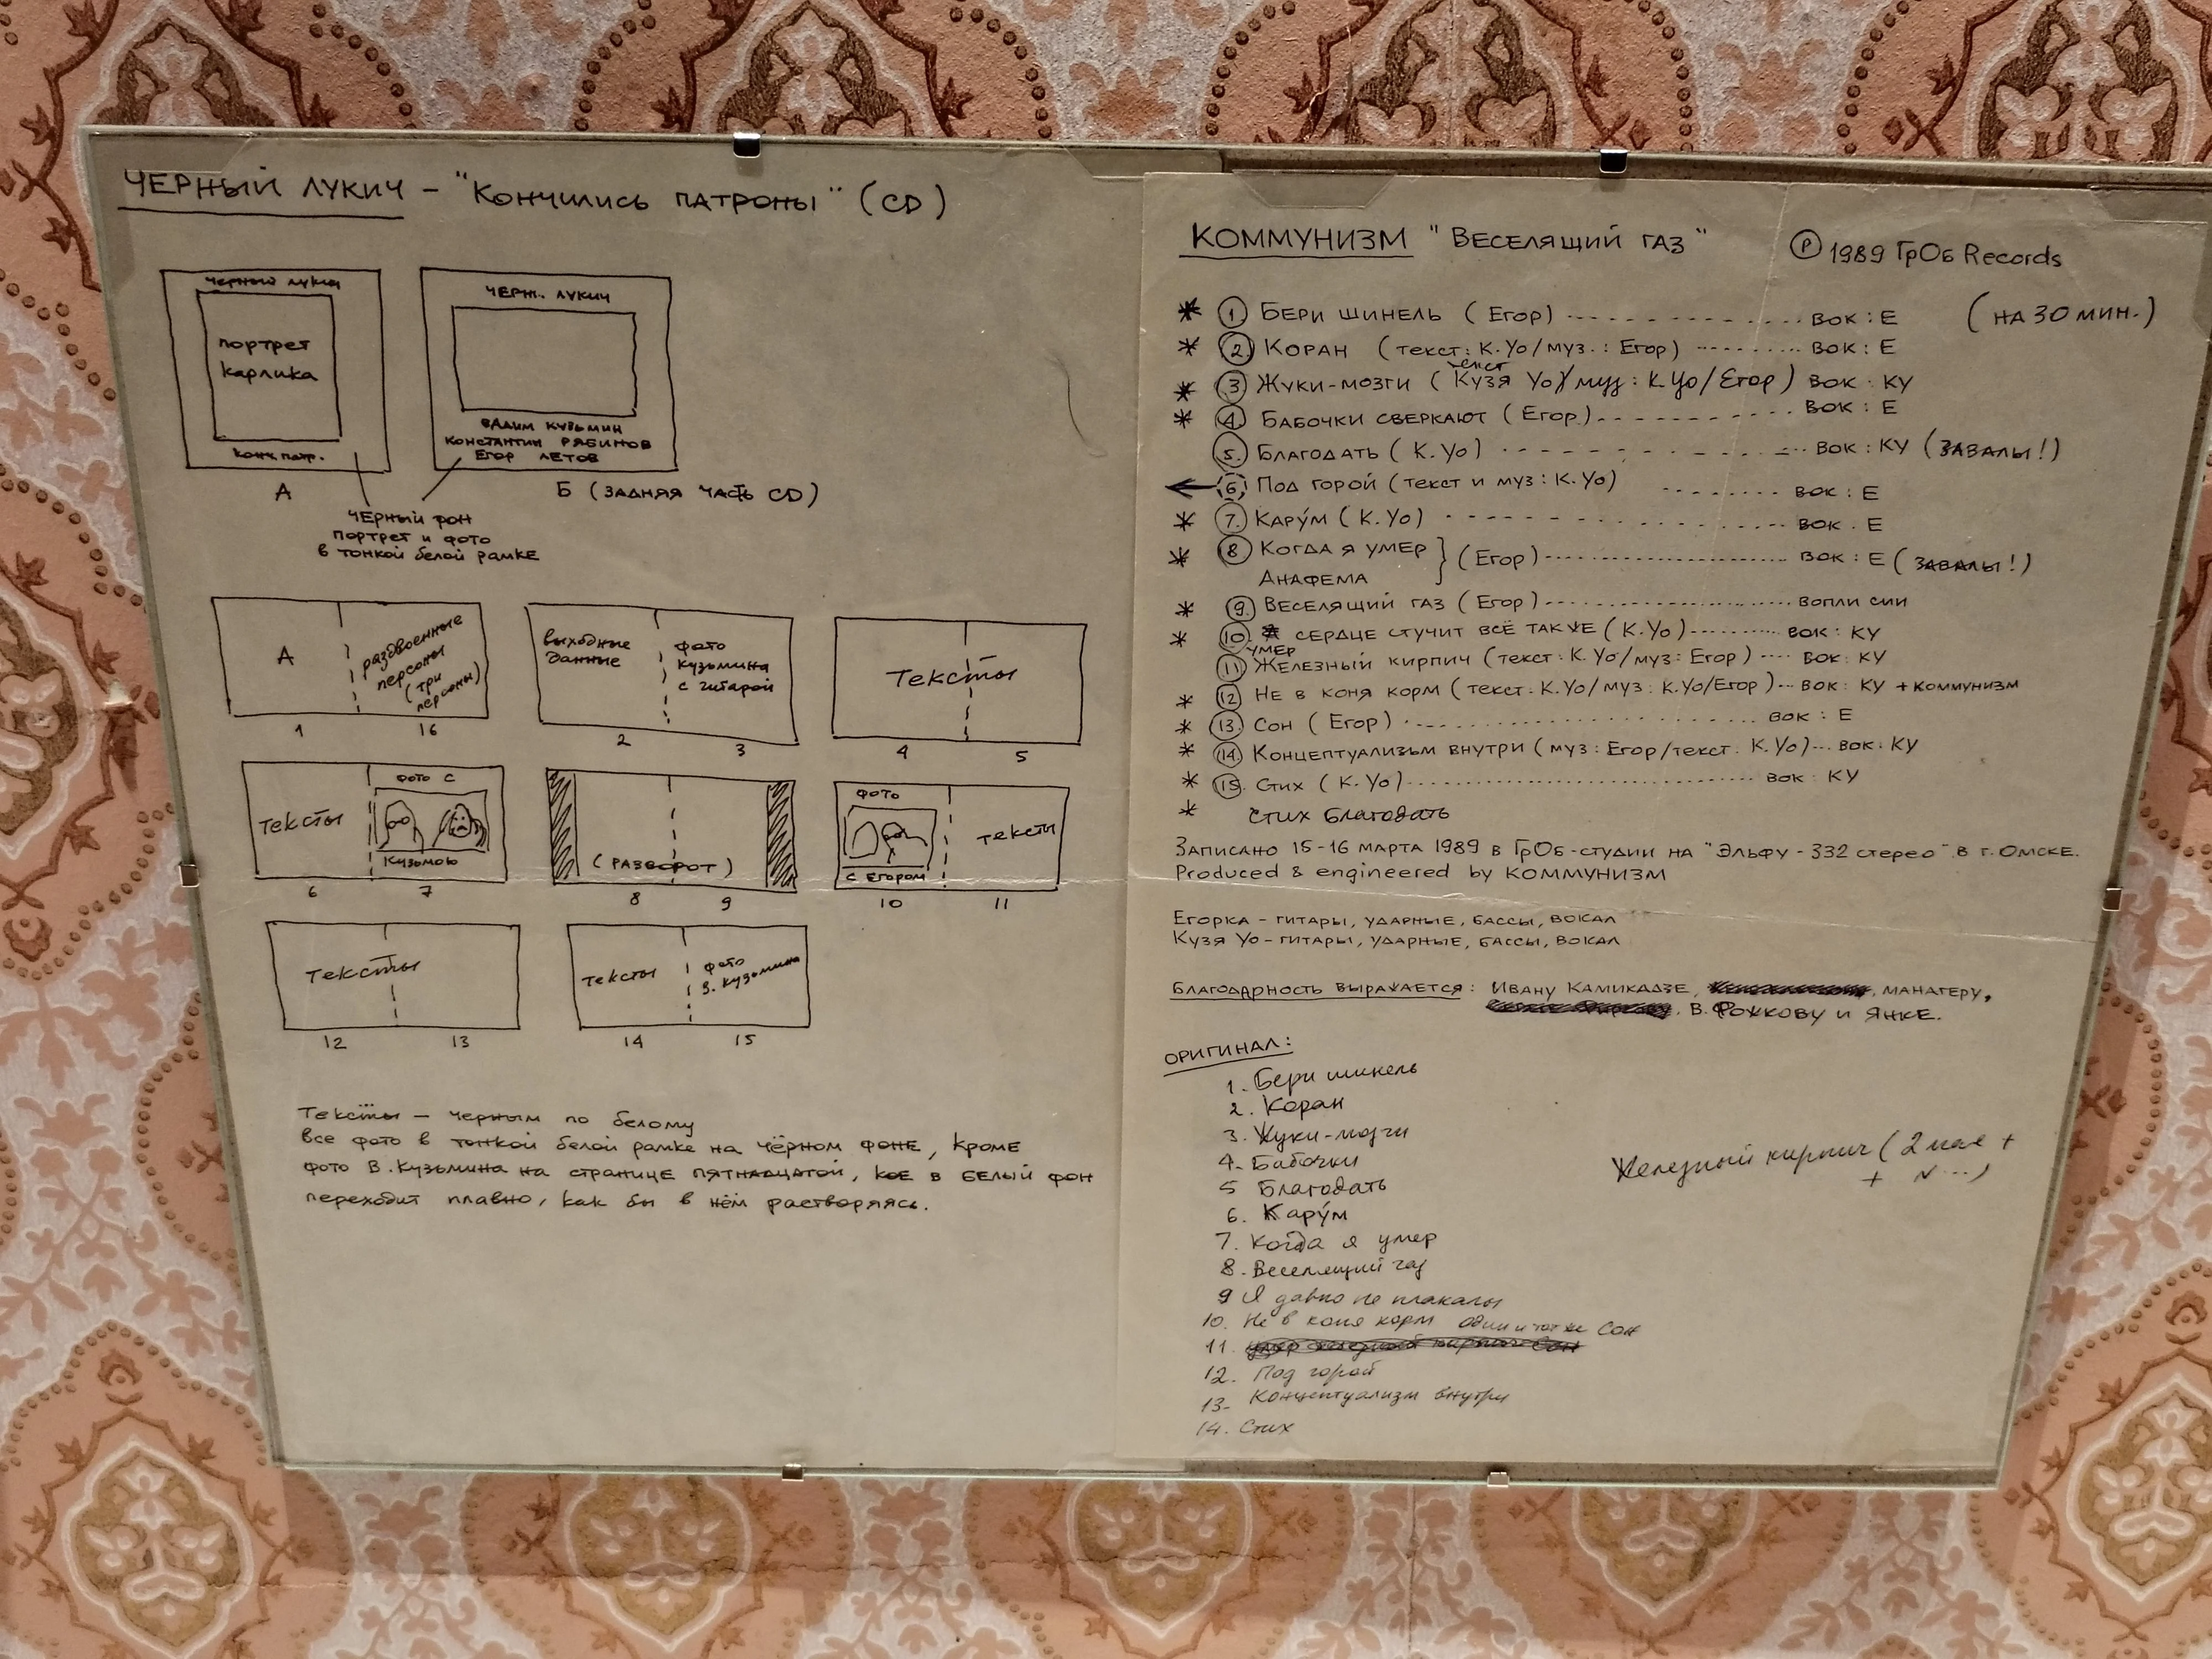 ЧЕРНЫЙ ЛУКИЧ – "Кончились патроны" (CD)
черный лукич
портрет
карлика
конч. патр.
А
ЧЕРН. ЛУКИЧ
ВАДИМ КУЗЬМИН
КОНСТАНТИН РЯБИНОВ
ЕГОР ЛЕТОВ
Б (ЗАДНЯЯ ЧАСТЬ CD)
ЧЕРНЫЙ ФОН
ПОРТРЕТ И ФОТО
в тонкой белой рамке
А
раздвоенные
персоны
(три
персоны)
1 16
выходные
данные
фото
Кузьмина
с гитарой
2 3
Тексты
4 5
Тексты
ФОТО С
Кузьмою
6 7
(РАЗВОРОТ)
8 9
ФОТО
С ЕГОРОМ
тексты
10 11
Тексты
12 13
Тексты
фото
В. Кузьмина
14 15
Тексты — черным по белому
все фото в тонкой белой рамке на чёрном фоне, кроме
фото В.Кузьмина на странице пятнадцатой, кое в белый фон
переходит плавно, как бы в нём растворяясь.
КОММУНИЗМ "Веселящий газ" Ⓟ 1989 ГрОб Records
(на 30 мин.)
* ① Бери шинель (Егор) ........... вок: Е
* ② Коран (текст: К.Уо/муз.: Егор) ........ вок: Е
* ③ Жуки-мозги (текст Кузя Уо/муз: К.Уо/Егор) вок: КУ
* ④ Бабочки сверкают (Егор) ........... вок: Е
⑤ Благодать (К.Уо) ........... вок: КУ (ЗАВАЛЫ!)
← ⑥ Под горой (текст и муз: К.Уо) ........ вок: Е
* ⑦ Карýм (К.Уо) ........... вок. Е
* ⑧ Когда я умер
Анафема } (Егор) ........... вок: Е (ЗАВАЛЫ!)
* ⑨ Веселящий газ (Егор) ........... вопли сии
* ⑩ Сердце стучит всё так же (К.Уо) .......... вок: КУ
умер
⑪ Железный кирпич (текст: К.Уо/муз: Егор) .... вок: КУ
* ⑫ Не в коня корм (текст: К.Уо/муз: К.Уо/Егор) ... вок: КУ + Коммунизм
* ⑬ Сон (Егор) ........... вок: Е
* ⑭ Концептуализьм внутри (муз: Егор/текст: К.Уо) ... вок: КУ
* ⑮ Стих (К.Уо) ........... вок: КУ
* Стих Благодать
Записано 15-16 марта 1989 в ГрОб-студии на "Эльфу-332 стерео" в г. Омске.
Produced & engineered by КОММУНИЗМ
Егорка – гитары, ударные, бассы, вокал
Кузя Уо – гитары, ударные, бассы, вокал
Благодарность выражается: Ивану Камикадзе, манагеру,
В. Рожкову и Янке.
ОРИГИНАЛ:
1. Бери шинель
2. Коран
3. Жуки-мозги
4. Бабочки
5 Благодать
6. Карýм
7. Когда я умер
8. Веселящий газ
9 Я давно не плакалы
10. Не в коня корм один и тот же Сон
11.
12. Под горой
13. Концептуализм внутри
14. Стих
Железный кирпич (2 мая +
+ N ...)